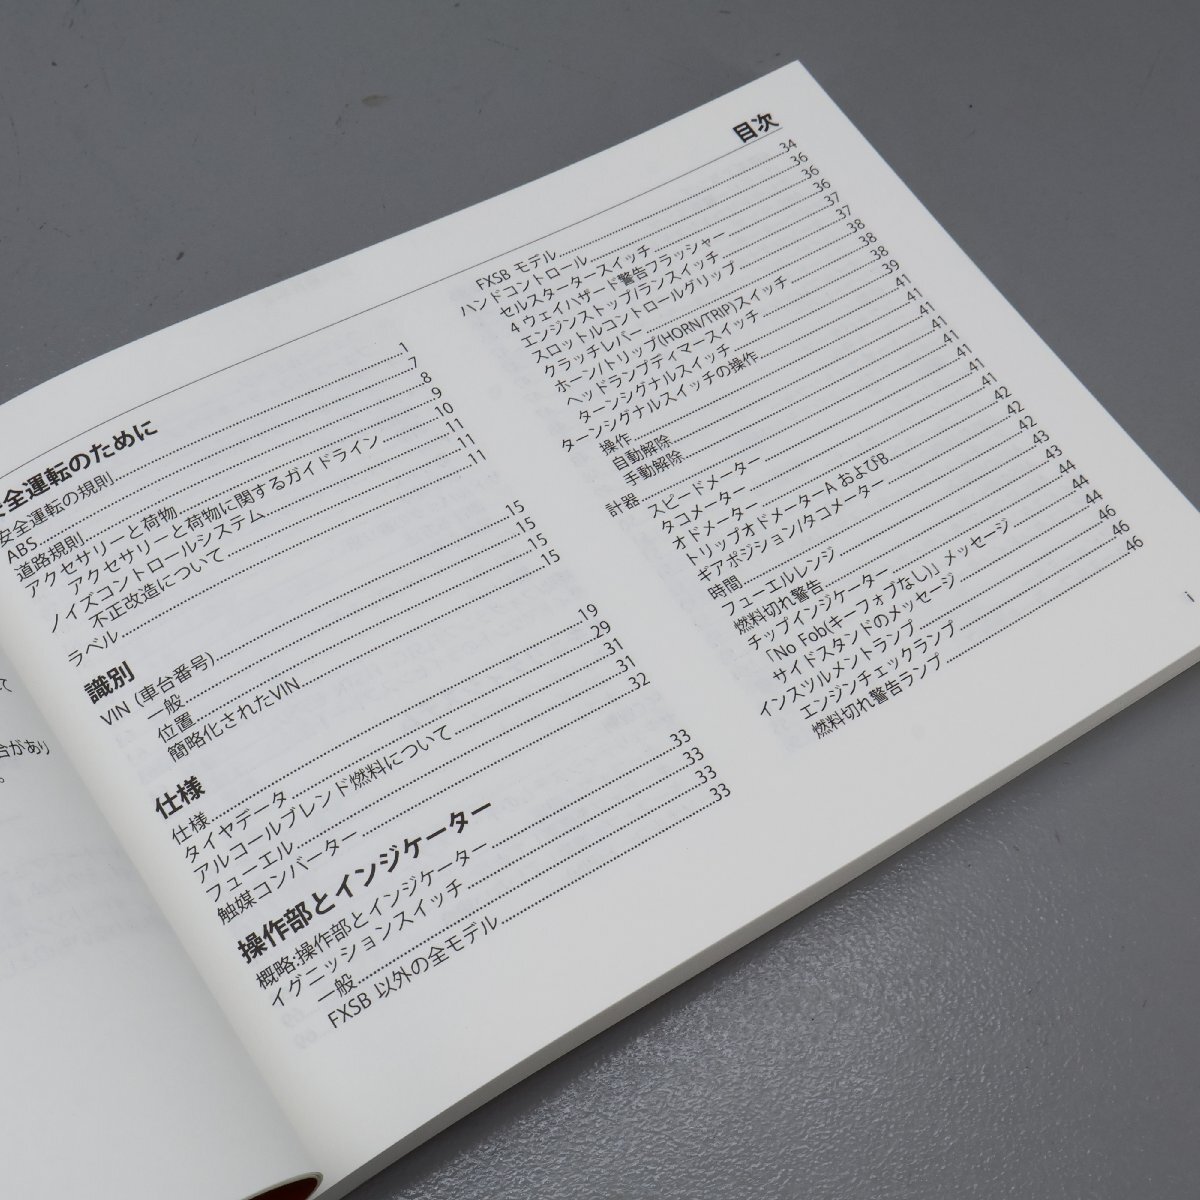 目次
安全運転のために
安全運転の規則..........1
ABS..........7
道路規則..........8
アクセサリーと荷物..........9
アクセサリーと荷物に関するガイドライン..........10
ノイズコントロールシステム..........11
不正改造について..........11
ラベル..........11
識別
VIN (車台番号)..........15
一般..........15
位置..........15
簡略化されたVIN..........15
仕様
仕様..........19
タイヤデータ..........29
アルコールブレンド燃料について..........31
フューエル..........31
触媒コンバーター..........32
操作部とインジケーター
概略:操作部とインジケーター..........33
イグニッションスイッチ..........33
一般..........33
FXSB 以外の全モデル..........33
FXSB モデル..........34
ハンドコントロール..........36
セルスタータースイッチ..........36
4 ウェイハザード警告フラッシャー..........36
エンジンストップ/ランスイッチ..........37
スロットルコントロールグリップ..........37
クラッチレバー..........38
ホーン/トリップ(HORN/TRIP)スイッチ..........38
ヘッドランプディマースイッチ..........38
ターンシグナルスイッチ..........39
ターンシグナルスイッチの操作..........41
操作..........41
自動解除..........41
手動解除..........41
計器..........41
スピードメーター..........41
タコメーター..........41
オドメーター..........41
トリップオドメーターA およびB..........42
ギアポジション/タコメーター..........42
時間..........42
フューエルレンジ..........43
燃料切れ警告..........43
チップインジケーター..........44
「No Fob(キーフォブなし)」メッセージ..........44
サイドスタンドのメッセージ..........44
インスツルメントランプ..........46
エンジンチェックランプ..........46
燃料切れ警告ランプ..........46
i
て
合があり
。